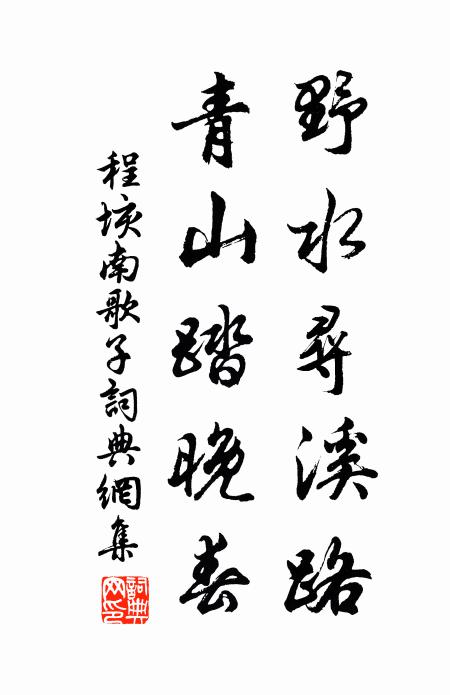 野水尋溪路
青山踏晚春
程垓南歌子詞典網集
詞典網印